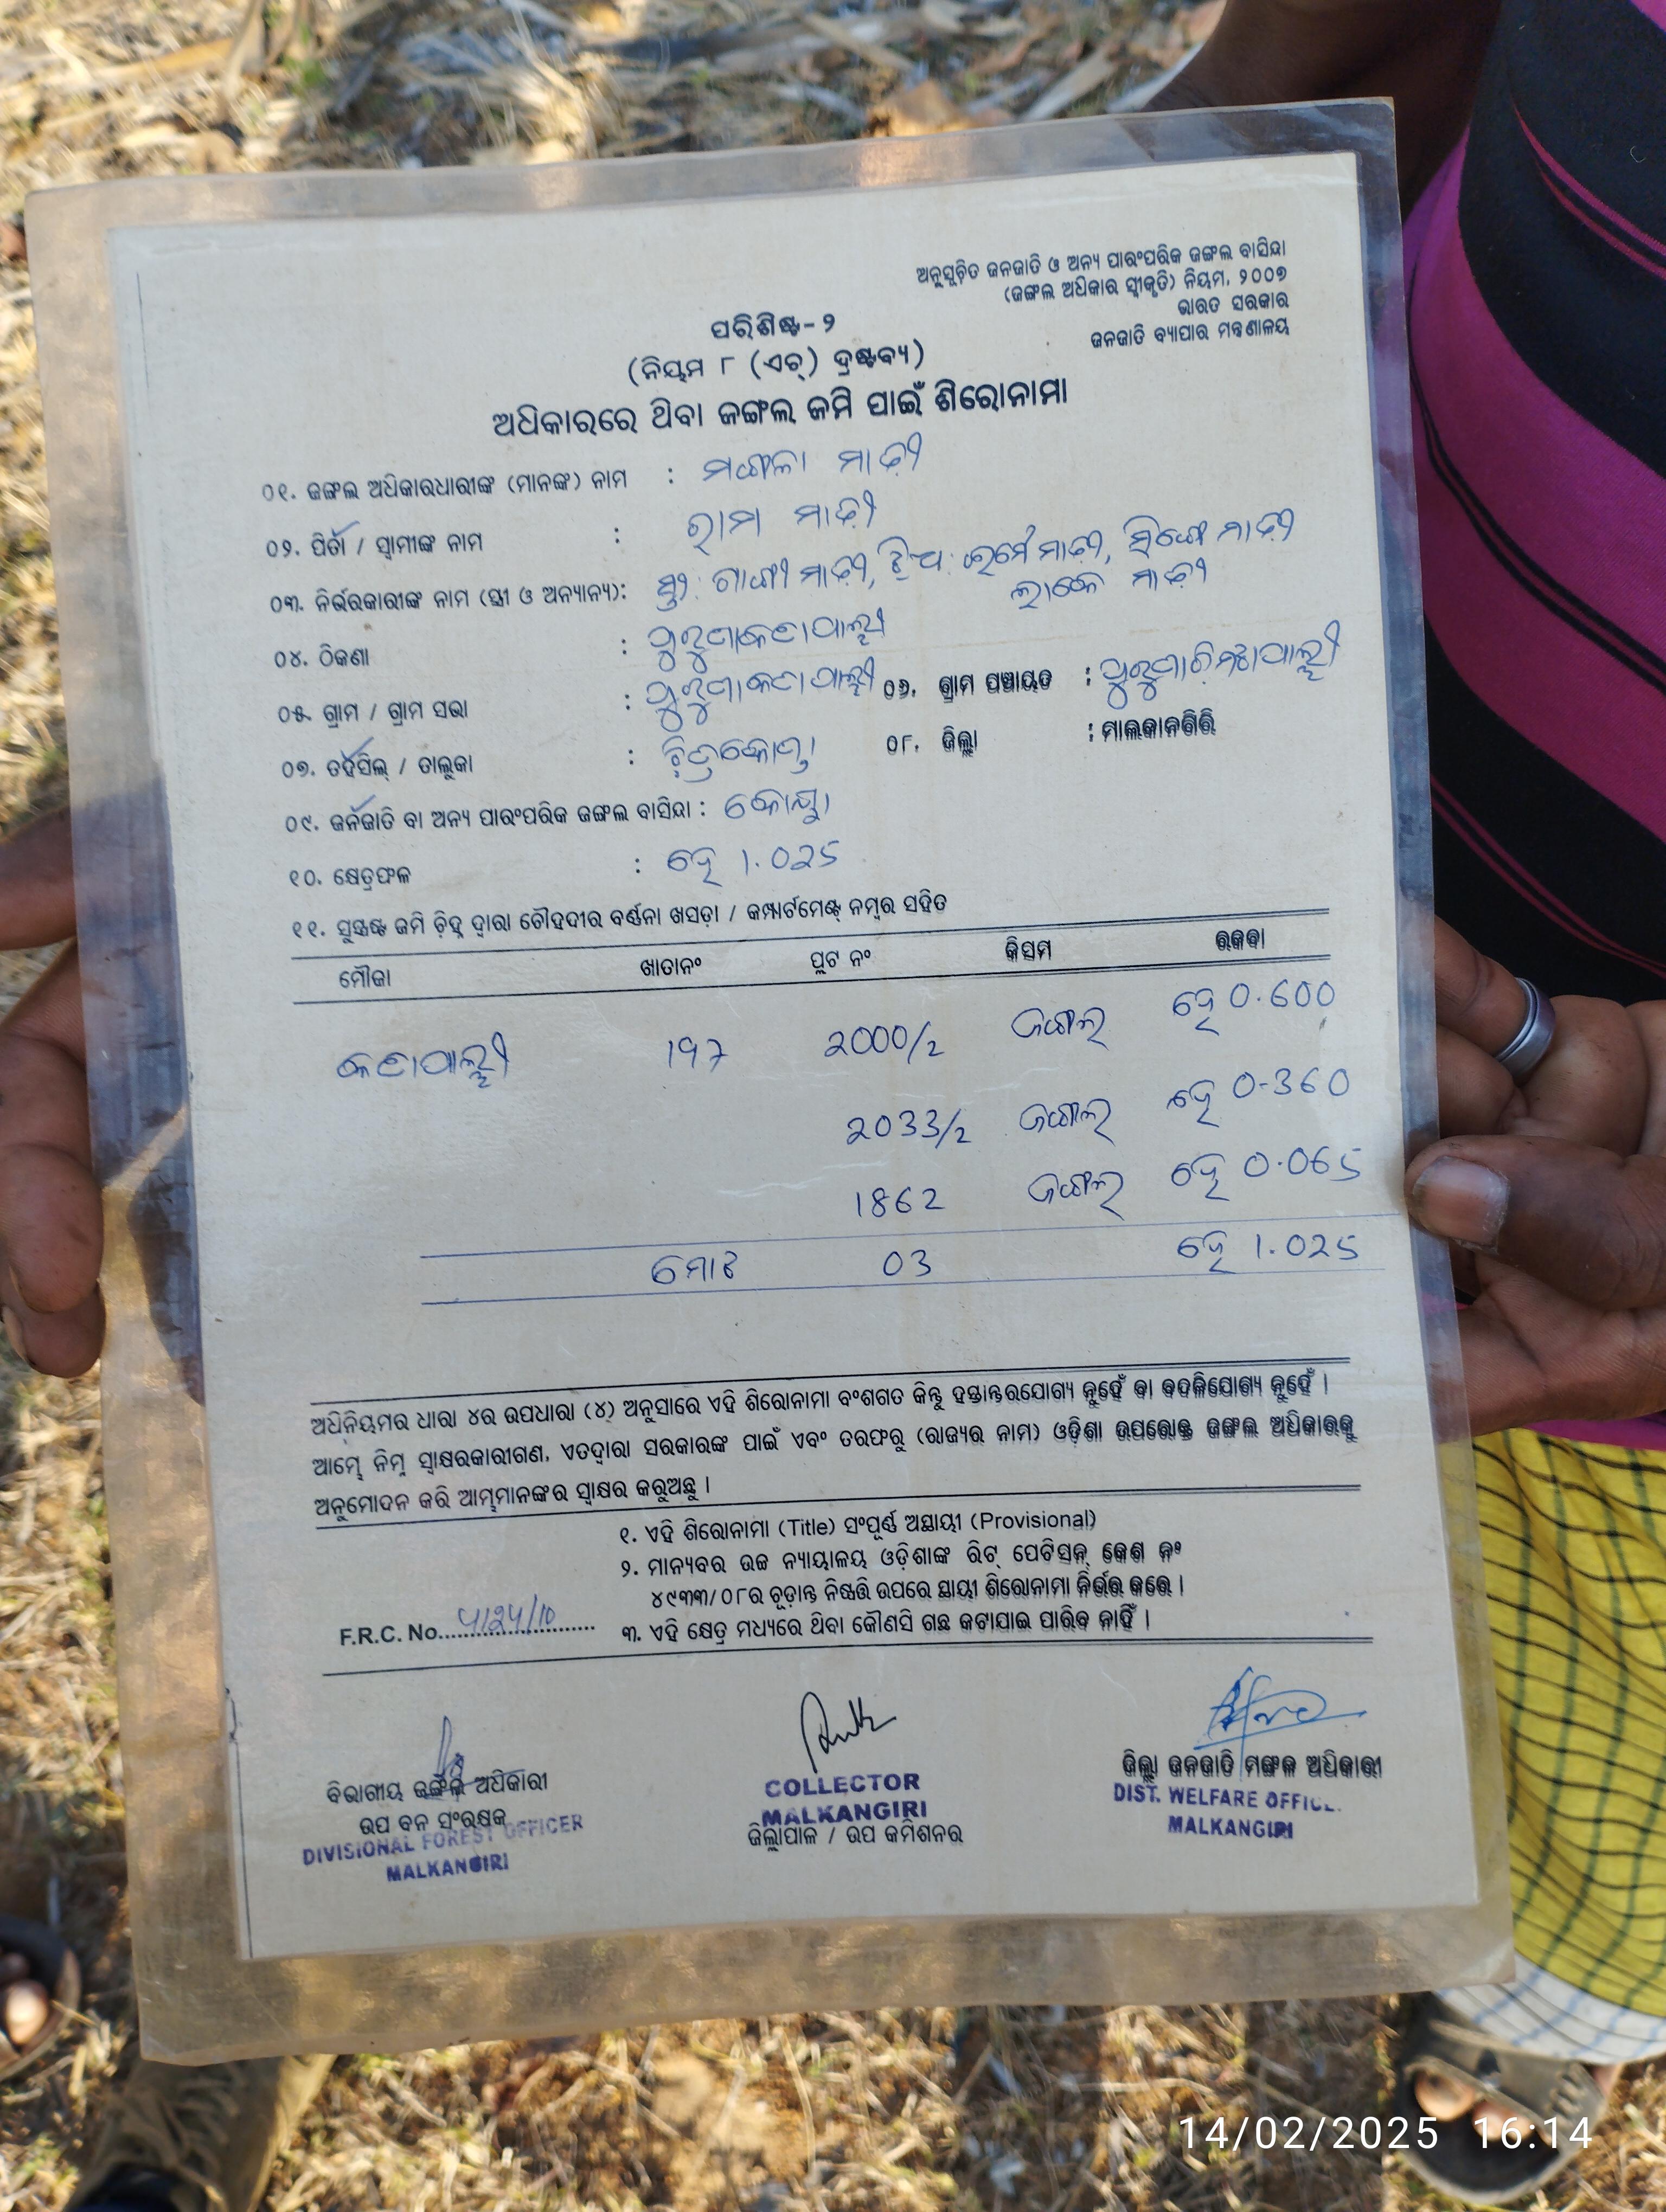 ଅନୁସୂଚିତ ଜନଜାତି ଓ ଅନ୍ୟ ପାରଂପରିକ ଜଙ୍ଗଲ ବାସିନ୍ଦା
(ଜଙ୍ଗଲ ଅଧିକାର ସ୍ୱୀକୃତି) ନିୟମ, ୨୦୦୭
ଭାରତ ସରକାର
ଜନଜାତି ବ୍ୟାପାର ମନ୍ତ୍ରଣାଳୟ
ପରିଶିଷ୍ଟ-୨
(ନିୟମ ୮ (ଏଚ୍) ଦ୍ରଷ୍ଟବ୍ୟ)
ଅଧିକାରରେ ଥିବା ଜଙ୍ଗଲ ଜମି ପାଇଁ ଶିରୋନାମା
୦୧. ଜଙ୍ଗଲ ଅଧିକାରଧାରୀଙ୍କ (ମାନଙ୍କ) ନାମ : ମଙ୍ଗଳା ମାଢ଼ୀ
୦୨. ପିତା / ସ୍ୱାମୀଙ୍କ ନାମ : ରାମା ମାଢ଼ୀ
୦୩. ନିର୍ଭରକାରୀଙ୍କ ନାମ (ସ୍ତ୍ରୀ ଓ ଅନ୍ୟାନ୍ୟ): ସ୍ତ୍ରୀ: ଗାଙ୍ଗୀ ମାଢ଼ୀ, ଝିଅ: ଇର୍ମେ ମାଢ଼ୀ, ସିଙ୍ଗେ ମାଢ଼ୀ
ଲାକେ ମାଢ଼ୀ
୦୪. ଠିକଣା : ପୁରୁଣାକଟାପାଲ୍ଲୀ
୦୫. ଗ୍ରାମ / ଗ୍ରାମ ସଭା : ପୁରୁଣାକଟାପାଲ୍ଲୀ ୦୬. ଗ୍ରାମ ପଞ୍ଚାୟତ :
୦୭. ତହସିଲ୍ / ତାଲୁକା : ଚିତ୍ରକୋଣ୍ଡା ୦୮. ଜିଲ୍ଲା : ମାଲକାନଗିରି
୦୯. ଜନଜାତି ବା ଅନ୍ୟ ପାରଂପରିକ ଜଙ୍ଗଲ ବାସିନ୍ଦା : କୋୟା
୧୦. କ୍ଷେତ୍ରଫଳ : ହେ 1.025
୧୧. ସୁସ୍ପଷ୍ଟ ଜମି ଚିହ୍ନ ଦ୍ୱାରା ଚୌହଦୀର ବର୍ଣ୍ଣନା ଖସଡ଼ା / କମ୍ପାର୍ଟମେଣ୍ଟ୍ ନମ୍ବର ସହିତ
ମୌଜା ଖାତାନଂ ପ୍ଲଟ ନଂ କିସମ ରକବା
କଟାପାଲ୍ଲୀ 197 2000/2 ଜଙ୍ଗଲ ହେ 0.600
2033/2 ଜଙ୍ଗଲ ହେ 0-360
1862 ଜଙ୍ଗଲ ହେ 0.065
ମୋଟ 03 ହେ 1.025
ଅଧିନିୟମର ଧାରା ୪ର ଉପଧାରା (୪) ଅନୁସାରେ ଏହି ଶିରୋନାମା ବଂଶଗତ କିନ୍ତୁ ହସ୍ତାନ୍ତରଯୋଗ୍ୟ ନୁହେଁ ବା ବଦଳିଯୋଗ୍ୟ ନୁହେଁ ।
ଆମ୍ଭେ ନିମ୍ନ ସ୍ୱାକ୍ଷରକାରୀଗଣ, ଏତଦ୍ୱାରା ସରକାରଙ୍କ ପାଇଁ ଏବଂ ତରଫରୁ (ରାଜ୍ୟର ନାମ) ଓଡ଼ିଶା ଉପରୋକ୍ତ ଜଙ୍ଗଲ ଅଧିକାରକୁ
ଅନୁମୋଦନ କରି ଆମ୍ଭମାନଙ୍କର ସ୍ୱାକ୍ଷର କରୁଅଛୁ ।
୧. ଏହି ଶିରୋନାମା (Title) ସଂପୂର୍ଣ୍ଣ ଅସ୍ଥାୟୀ (Provisional)
୨. ମାନ୍ୟବର ଉଚ୍ଚ ନ୍ୟାୟାଳୟ ଓଡ଼ିଶାଙ୍କ ରିଟ୍ ପେଟିସନ୍ କେଶ ନଂ
୪୯୩୩/୦୮ର ଚୂଡ଼ାନ୍ତ ନିଷ୍ପତ୍ତି ଉପରେ ସ୍ଥାୟୀ ଶିରୋନାମା ନିର୍ଭର କରେ ।
୩. ଏହି କ୍ଷେତ୍ର ମଧ୍ୟରେ ଥିବା କୌଣସି ଗଛ କଟାଯାଇ ପାରିବ ନାହିଁ ।
F.R.C. No.
ବିଭାଗୀୟ ଜଙ୍ଗଲ ଅଧିକାରୀ
ଉପ ବନ ସଂରକ୍ଷକ
DIVISIONAL FOREST OFFICER
MALKANGIRI
COLLECTOR
MALKANGIRI
ଜିଲ୍ଲାପାଳ / ଉପ କମିଶନର
ଜିଲ୍ଲା ଜନଜାତି ମଙ୍ଗଳ ଅଧିକାରୀ
DIST. WELFARE OFFICE.
MALKANGIRI
14/02/2025 16:14